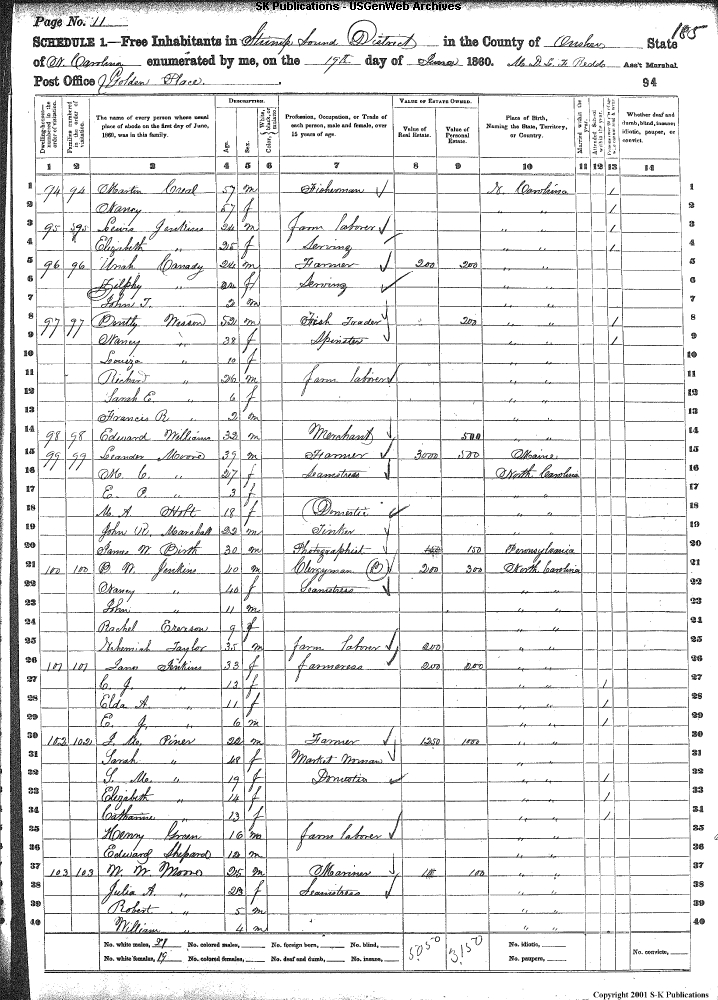 SK Publications - USGenWeb Archives
Page No. 11
185
SCHEDULE 1.—Free Inhabitants in Stump Sound District in the County of Onslow State
of N. Carolina enumerated by me, on the 19th day of June 1860. Ass't Marshal
Post Office Golden Place. 94
DESCRIPTION. VALUE OF ESTATE OWNED.
Dwelling-houses numbered in the order of visitation. Families numbered in the order of visitation. The name of every person whose usual place of abode on the first day of June, 1860, was in this family. Age. Sex. Color, White, black, or mulatto. Profession, Occupation, or Trade of each person, male and female, over 15 years of age. Value of Real Estate. Value of Personal Estate. Place of Birth, Naming the State, Territory, or Country. Married within the year. Whether deaf and dumb, blind, insane, idiotic, pauper, or convict.
1 2 3 4 5 6 7 8 9 10 11 12 13 14
1 94 94 Martin Creal 57 m Fisherman N. Carolina / 1
2 Nancy " 57 f " " / 2
3 95 95 Lewis Jenkins 24 m farm laborer " " / 3
4 Elizabeth " 25 f Serving " " / 4
5 96 96 Uriah Canady 24 m Farmer 200 200 " " 5
6 Zilphy " f Serving " " 6
7 John T. 2 m " " 7
8 97 97 Wesson 52 m Fish Trader 200 " " / 8
9 Nancy " 38 f Spinster " " / 9
10 Louiza " 10 f " " 10
11 Richard " 26 m farm laborer " " 11
12 Sarah E. " 6 f " " 12
13 Francis R. " 2 m " " 13
14 98 98 Edward Williams 32 m Merchant 500 " " 14
15 99 99 Leander Moore 39 m Farmer 3000 500 Maine 15
16 M. C. " 27 f Seamstress North Carolina 16
17 E. P. " 3 f " " 17
18 M. A. Holt 18 f Domestic " " 18
19 John R. Marshall 22 m Tinker " " 19
20 James W. Birth 30 m Photographist 150 Pennsylvania 20
21 100 100 O. W. Jenkins 40 m Clergyman 200 300 North Carolina 21
22 Nancy " 40 f Seamstress " " 22
23 John " 11 m " " 23
24 Rachel 9 f " " 24
25 Nehemiah Taylor 35 m farm laborer 200 " " 25
26 101 101 Jane Jenkins 33 f farmeress 200 200 " " 26
27 C. J. " 13 f " " / 27
28 Elda A. " 11 f " " / 28
29 E. J. " 6 m " " / 29
30 102 102 J. M. Piner 22 m Farmer 1250 1000 " " 30
31 Sarah " 48 f Market Woman " " 31
32 S. M. " 19 f Domestic " " / 32
33 Elizabeth " 14 f " " / 33
34 Catharine " 13 f " " / 34
35 Henry Green 16 m farm laborer " " 35
36 Edward Shepard 12 m " " 36
37 103 103 W. W. Moore 25 m Mariner 100 " " 37
38 Julia A. " 23 f Seamstress " " 38
39 Robert " 5 m " " 39
40 William " 4 m " " 40
No. white males, No. colored males, No. foreign born, No. blind, 5050 3,150 No. idiotic,
No. white females, 19 No. colored females, No. deaf and dumb, No. insane, No. paupers, No. convicts,
Copyright 2001 S-K Publications